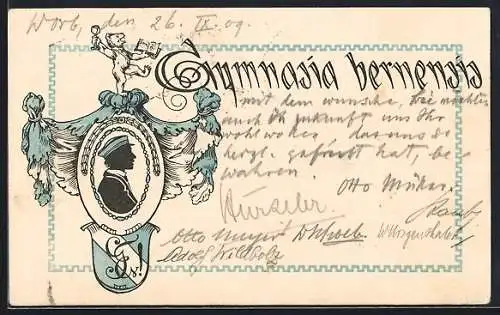 Worb, den 26. IX. 09.
Gymnasia bernensis
mit dem wunsche, Sie möchten
auch in zukunft uns Ihr
wohlwollen, das uns so
herzl. gefreut hat, be
wahren.
Otto Müller.
Hürzeler.
Otto Meyer
Adolf Kildbolz